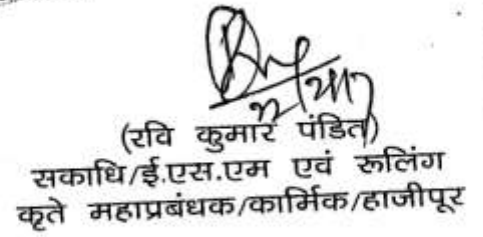 (रवि कुमार पंडित)
सकाधि/ई.एस.एम एवं रूलिंग
कृते महाप्रबंधक/कार्मिक/हाजीपूर